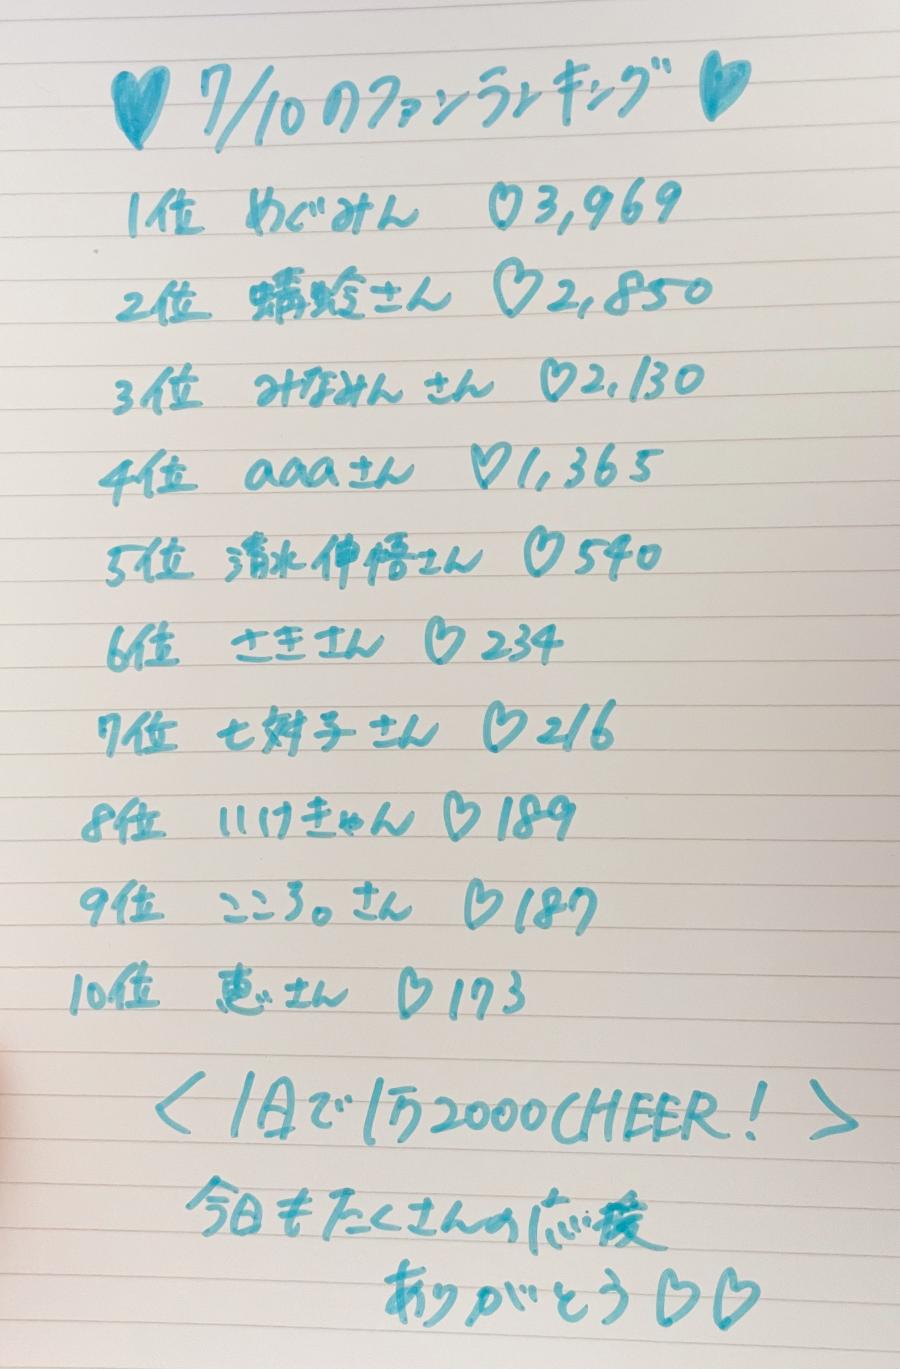 ♥ 7/10のファンランキング ♥
1位 めぐみん ♡3,969
2位 蜻蛉さん ♡2,850
3位 みなみんさん ♡2,130
4位 aaaさん ♡1,365
5位 清水伸悟さん ♡540
6位 さきさん ♡234
7位 七対子さん ♡216
8位 いけきゃん ♡189
9位 こころ。さん ♡187
10位 恵さん ♡173
<1日で1万2000CHEER!>
今日もたくさんの応援
ありがとう♡♡